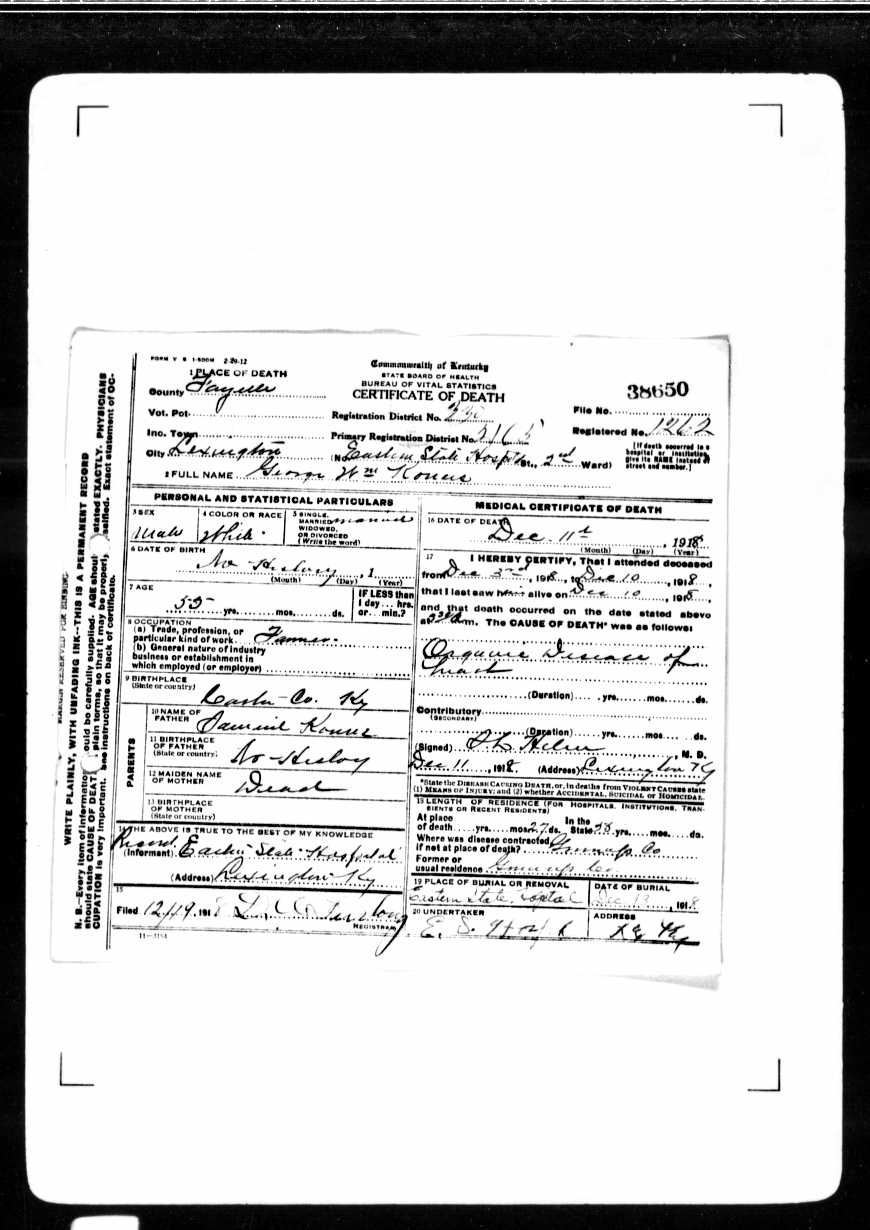 FORM V S 1-500M 2-20-12
Commonwealth of Kentucky
STATE BOARD OF HEALTH
BUREAU OF VITAL STATISTICS
CERTIFICATE OF DEATH
38650
1 PLACE OF DEATH
County Fayette
Vot. Pct.
Registration District No.
File No.
Inc. Town
Primary Registration District No. 2165
Registered No. 1262
City Lexington
(No. Eastern State Hospital St., 2nd Ward)
[If death occurred in a hospital or institution, give its NAME instead of street and number.]
2 FULL NAME George Wm
PERSONAL AND STATISTICAL PARTICULARS
3 SEX
Male
4 COLOR OR RACE
White
5 SINGLE, MARRIED, WIDOWED, OR DIVORCED (Write the word)
married
6 DATE OF BIRTH
No History, 1
(Month) (Day) (Year)
7 AGE
55 yrs. mos. ds.
IF LESS than 1 day... hrs. or... min.?
8 OCCUPATION
(a) Trade, profession, or particular kind of work Farmer
(b) General nature of industry business or establishment in which employed (or employer)
9 BIRTHPLACE
(State or country)
Carter Co. Ky
PARENTS
10 NAME OF FATHER
Samuel
11 BIRTHPLACE OF FATHER
(State or country)
No History
12 MAIDEN NAME OF MOTHER
Dead
13 BIRTHPLACE OF MOTHER
(State or country)
14 THE ABOVE IS TRUE TO THE BEST OF MY KNOWLEDGE
Record
(Informant) Eastern State Hospital
(Address) Lexington Ky
15
Filed 12/19, 1918
REGISTRAR
11-3184
MEDICAL CERTIFICATE OF DEATH
16 DATE OF DEATH
Dec. 11th, 1918
(Month) (Day) (Year)
17 I HEREBY CERTIFY, That I attended deceased
from Dec 3rd, 1918, to Dec 10, 1918,
that I last saw him alive on Dec 10, 1918,
and that death occurred on the date stated above
at m. The CAUSE OF DEATH* was as follows:
Organic Disease of
heart
(Duration) yrs. mos. ds.
Contributory
(SECONDARY)
(Duration) yrs. mos. ds.
(Signed), M. D.
Dec 11, 1918 (Address) Lexington Ky
*State the DISEASE CAUSING DEATH, or, in deaths from VIOLENT CAUSES state (1) MEANS OF INJURY; and (2) whether ACCIDENTAL, SUICIDAL or HOMICIDAL.
18 LENGTH OF RESIDENCE (FOR HOSPITALS, INSTITUTIONS, TRANSIENTS OR RECENT RESIDENTS)
At place of death yrs. mos. 27 ds. In the State 55 yrs. mos. ds.
Where was disease contracted if not at place of death? Greenup Co
Former or usual residence Greenup Co
19 PLACE OF BURIAL OR REMOVAL
Eastern State Hospital
DATE OF BURIAL
Dec 13, 1918
20 UNDERTAKER
E. S.
ADDRESS
Lex Ky
MARGIN RESERVED FOR BINDING
WRITE PLAINLY, WITH UNFADING INK--THIS IS A PERMANENT RECORD
N. B.--Every item of information should be carefully supplied. AGE should be stated EXACTLY. PHYSICIANS
should state CAUSE OF DEATH in plain terms, so that it may be properly classified. Exact statement of OC-
CUPATION is very important. See instructions on back of certificate.